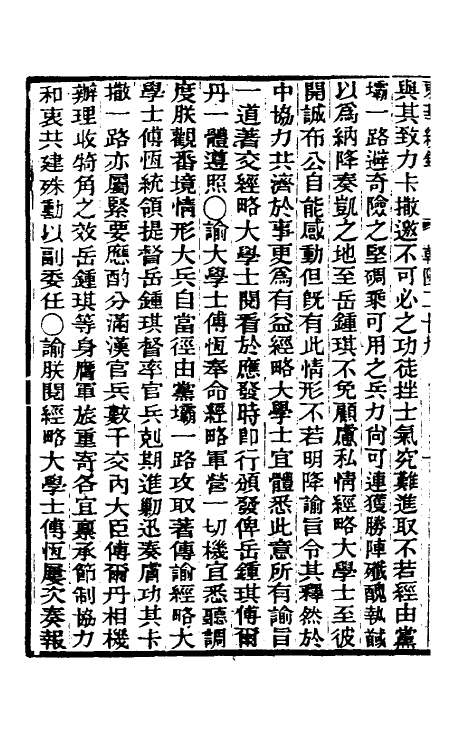 與其致力卡撒邀不可必之功徒挫士氣究難進取不若經由黨
壩一路避奇險之堅碉乘可用之兵力尚可連獲勝陣殲醜執馘
以爲納降奏凱之地至岳鍾琪不免顧慮私情經略大學士至彼
開誠布公自能感動但旣有此情形不若明降諭旨令其釋然於
中協力共濟於事更爲有益經略大學士宜體悉此意所有諭旨
一道著交經略大學士閱看於應發時卽行頒發俾岳鍾琪傅爾
丹一體遵照○諭大學士傅恆奉命經略軍營一切機宜悉聽調
度朕觀番境情形大兵自當徑由黨壩一路攻取著傳諭經略大
學士傅恆統領提督岳鍾琪督率官兵剋期進勦迅奏膚功其卡
撒一路亦屬緊要應酌分滿漢官兵數千交內大臣傅爾丹相機
辦理收犄角之效岳鍾琪等身膺軍旅重寄各宜稟承節制協力
和衷共建殊勳以副委任○諭朕閱經略大學士傅恆屢次奏報